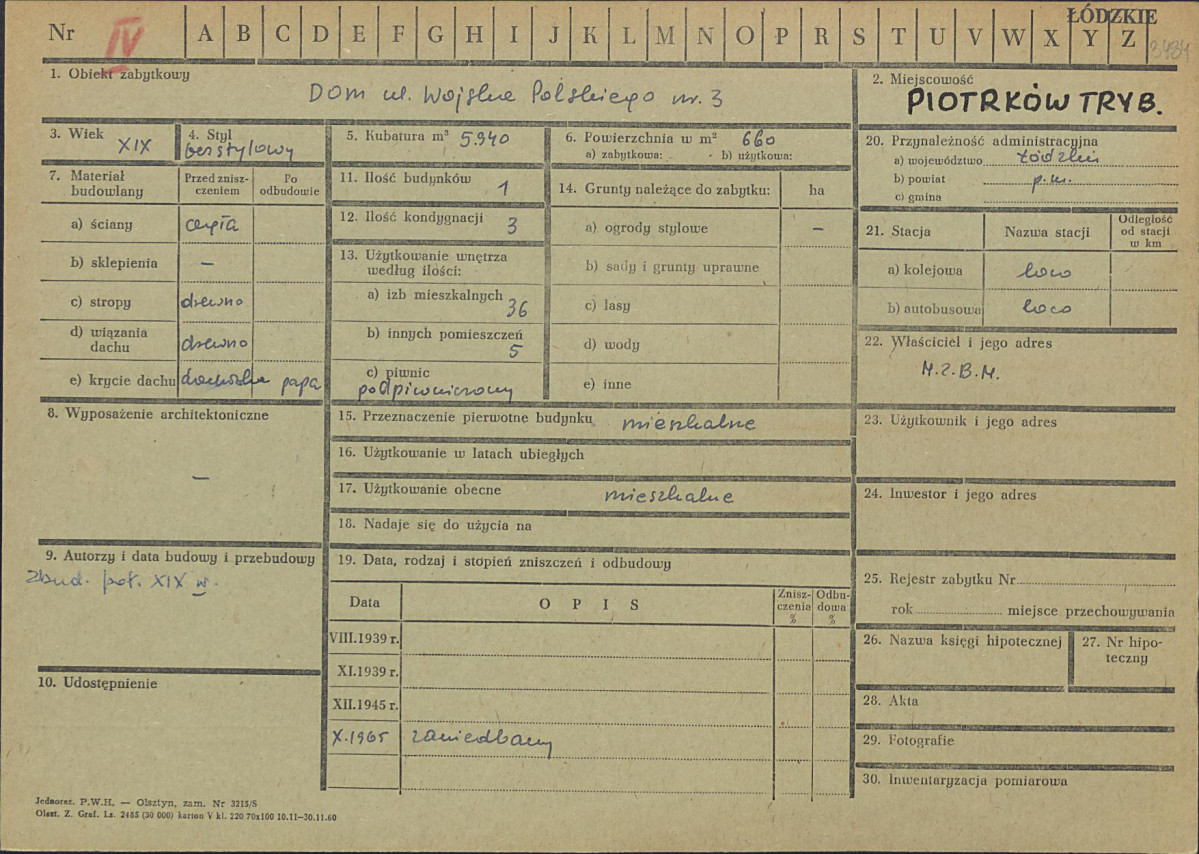 Nr IV A B C D E F G H I J K L M N O P R S T U V W X Y Z
ŁÓDZKIE
3434
1. Obiekt zabytkowy
Dom ul. Wojska Polskiego nr. 3
2. Miejscowość
PIOTRKÓW TRYB.
3. Wiek XIX
4. Styl bezstylowy
5. Kubatura m³ 5.940
6. Powierzchnia w m² 660
a) zabytkowa: b) użytkowa:
7. Materiał budowlany
Przed zniszczeniem
Po odbudowie
a) ściany cegła
b) sklepienia —
c) stropy drewno
d) wiązania dachu drewno
e) krycie dachu papa
8. Wyposażenie architektoniczne
—
9. Autorzy i data budowy i przebudowy
zbud. poł. XIX w.
10. Udostępnienie
11. Ilość budynków 1
12. Ilość kondygnacji 3
13. Użytkowanie wnętrza według ilości:
a) izb mieszkalnych 36
b) innych pomieszczeń 5
c) piwnic
podpiwniczony
14. Grunty należące do zabytku: ha
a) ogrody stylowe —
b) sady i grunty uprawne
c) lasy
d) wody
e) inne
15. Przeznaczenie pierwotne budynku mieszkalne
16. Użytkowanie w latach ubiegłych
17. Użytkowanie obecne mieszkalne
18. Nadaje się do użycia na
19. Data, rodzaj i stopień zniszczeń i odbudowy
Data OPIS Zniszczenia % Odbudowa %
VIII.1939 r.
XI.1939 r.
XII.1945 r.
X.1965 zaniedbany
20. Przynależność administracyjna
a) województwo łódzkie
b) powiat p.m.
c) gmina
21. Stacja Nazwa stacji Odległość od stacji w km
a) kolejowa loco
b) autobusowa loco
22. Właściciel i jego adres
M.Z.B.M.
23. Użytkownik i jego adres
24. Inwestor i jego adres
25. Rejestr zabytku Nr
rok miejsce przechowywania
26. Nazwa księgi hipotecznej
27. Nr hipoteczny
28. Akta
29. Fotografie
30. Inwentaryzacja pomiarowa
Jednoraz. P.W.H. — Olsztyn, zam. Nr 3215/S
Olszt. Z. Graf. Lz. 2485 (30 000) karton V kl. 220 70x100 10.11—30.11.60